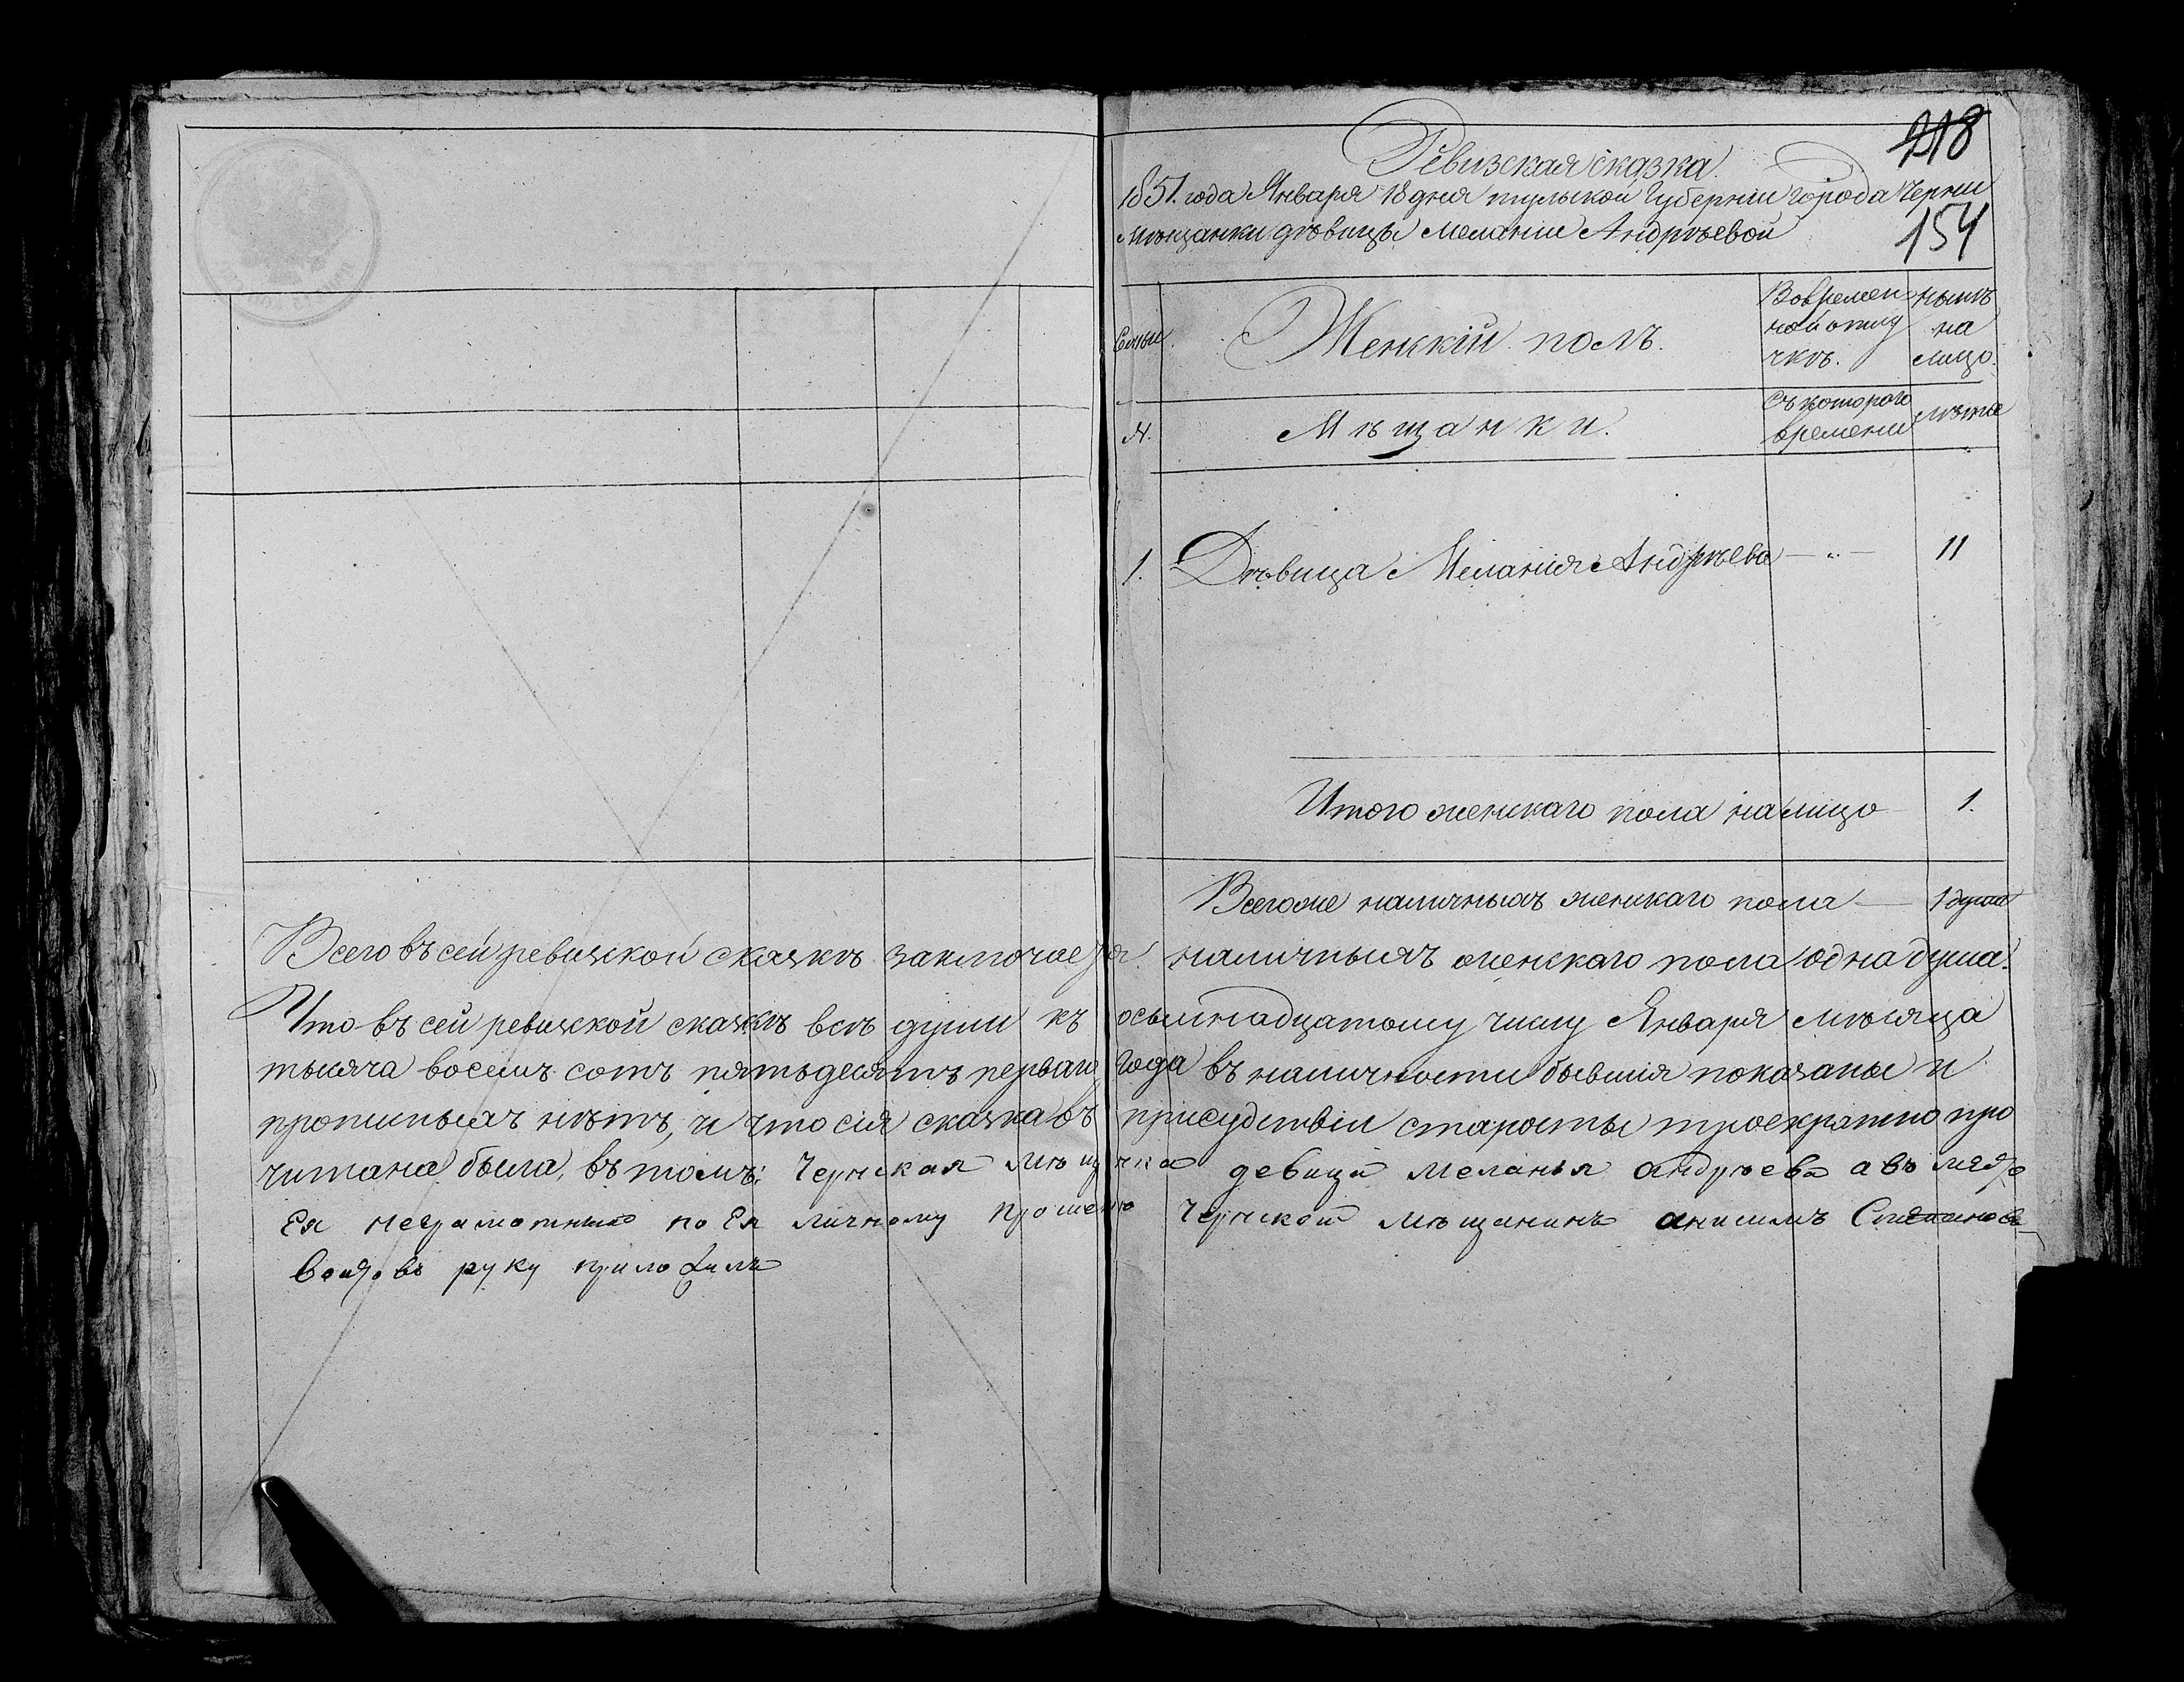 218
Ревизская сказка.
1851. года Января 18 дня тульской Губернии города Черни
мѣщанки дѣвицы Меланiи Андрѣевой
154
Семьи
Женскiй полъ.
Во времен
ной отлу
чкѣ.
нынѣ
на
лицо.
№.
Мѣщанки.
Съ котораго
времени
лѣта
1. Дѣвица Меланiя Андрѣева — „ — 11
Итого женскаго пола налицо 1.
Всегоже наличныхъ женскаго пола — 1 душа
Всего въ сей ревизской сказкѣ заключается. наличныхъ женскаго пола одна душа.
Что въ сей ревизской сказкѣ всѣ души къ осьмнадцатому числу Января мѣсяца
тысяча восемь сотъ пятьдесятъ перваго года въ наличности бывшiя показаны и
прописныхъ нѣтъ, и что сiя сказка въ присудствiи старосты троекратно про
читана была, въ томъ: Чернская мѣщанка девица Меланья андрѣева а въ место
Ея неграмотных по Ея личному прошению Чернской мѣщанинъ анисимъ
руку приложилъ